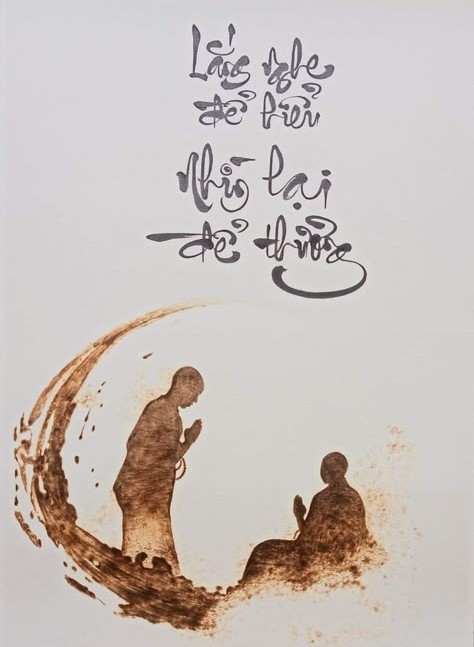 Lắng nghe
để hiểu
Nhìn lại
để thương